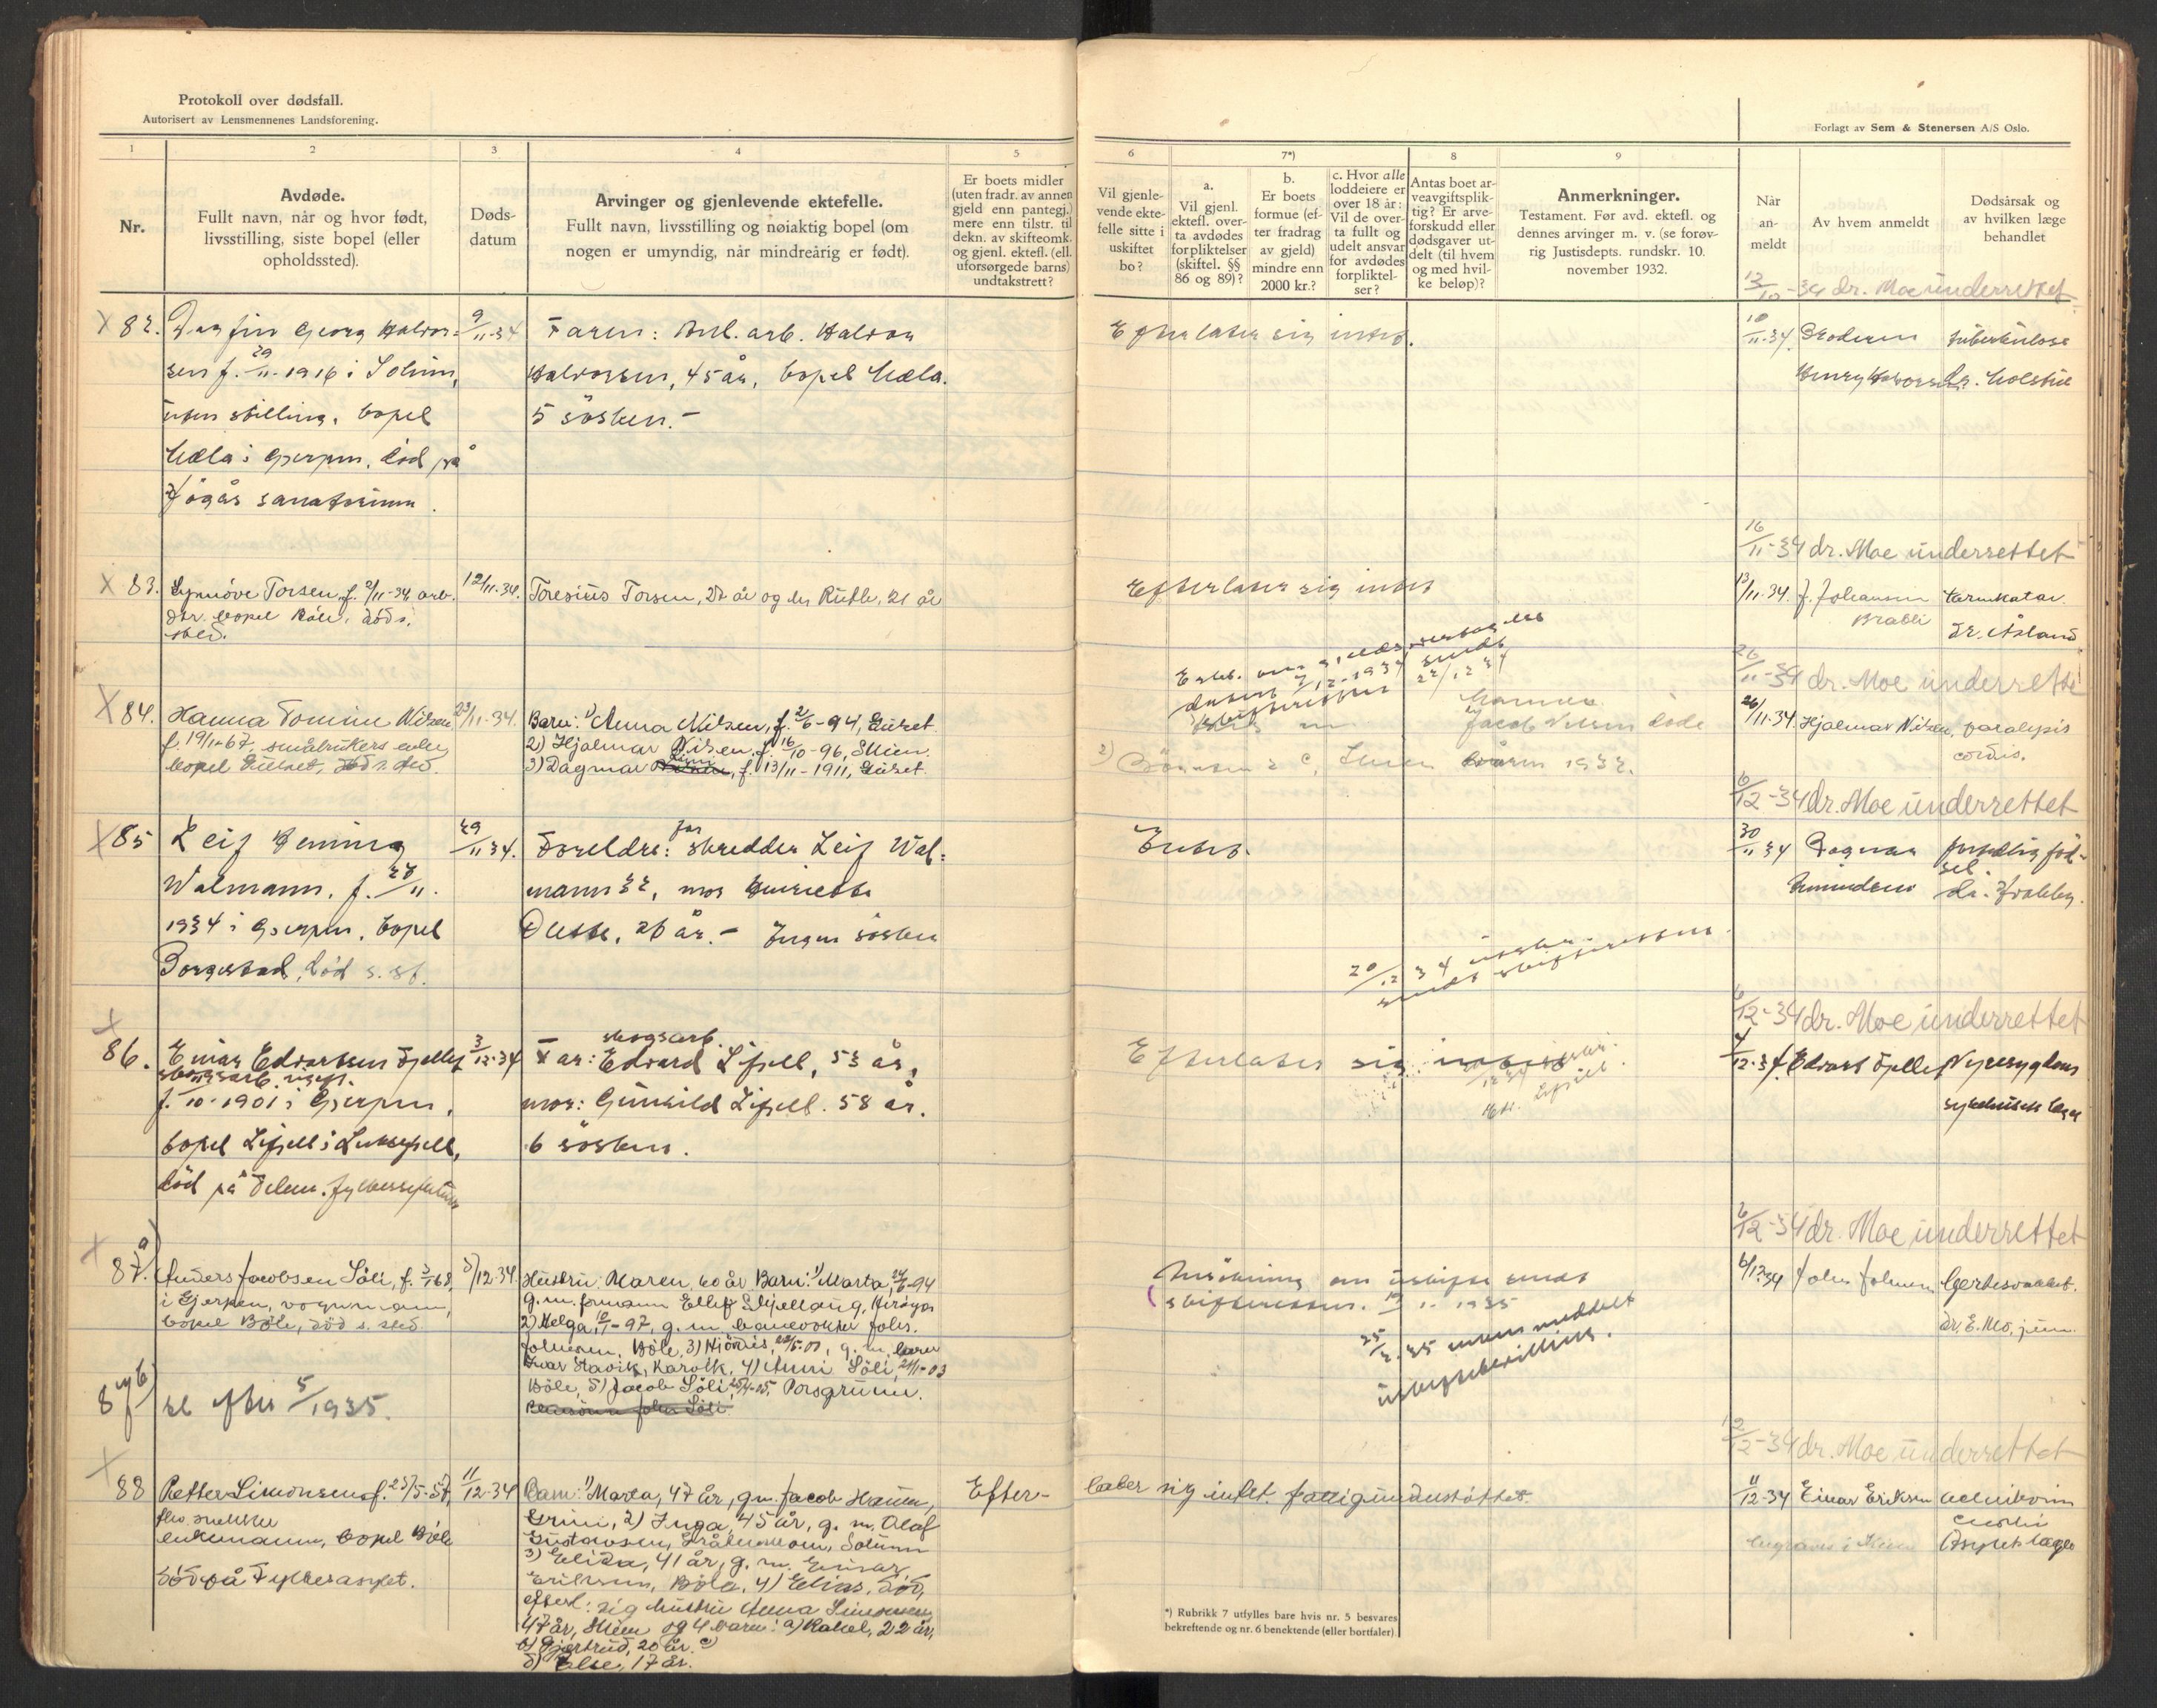 Protokoll over dødsfall.
Autorisert av Lensmennenes Landsforening.
Forlagt av Sem & Stenersen A/S Oslo.
1
2
3
4
5
6
7*)
8
9
Nr.
Avdøde.
Fullt navn, når og hvor født,
livsstilling, siste bopel (eller
opholdssted).
Døds-
datum
Arvinger og gjenlevende ektefelle.
Fullt navn, livsstilling og nøiaktig bopel (om
nogen er umyndig, når mindreårig er født).
Er boets midler
(uten fradr. av annen
gjeld enn pantegj.)
mere enn tilstr. til
dekn. av skifteomk.
og gjenl. ektefl. (ell.
uforsørgede barns)
undtakstrett?
Vil gjenle-
vende ekte-
felle sitte i
uskiftet
bo?
a.
Vil gjenl.
ektefl. over-
ta avdødes
forpliktelser
(skiftel. §§
86 og 89)?
b.
Er boets
formue (ef-
ter fradrag
av gjeld)
mindre enn
2000 kr.?
c. Hvor alle
loddeiere er
over 18 år:
Vil de over-
ta fullt og
udelt ansvar
for avdødes
forpliktel-
ser?
Antas boet ar-
veavgiftsplik-
tig? Er arve-
forskudd eller
dødsgaver ut-
delt (til hvem
og med hvil-
ke beløp)?
Anmerkninger.
Testament. Før avd. ektefl. og
dennes arvinger m. v. (se forøv-
rig Justisdepts. rundskr. 10.
november 1932.
Når
an-
meldt
Av hvem anmeldt
Dødsårsak og
av hvilken læge
behandlet
13/10-34 dr. Moe underrettet
X 82. Dagfin Georg Halvor-
sen f. 29/11-1916 i Solum,
uten stilling, bopel
Mæla i Gjerpen, død på
sanatorium.
9/11-34
Faren: Anl. arb. Halvor
Halvorsen, 45 år, bopel Mæla.
5 søsken.-
Efterlater sig intet.
10/11-34. Broderen
Henry Halvorsen
tuberkulose
dr. Holstad
16/11-34 dr. Moe underrettet
X 83. Synnøve Torsen, f. 2/11-34, arb.
dtr. bopel Bøle, død s.
sted.
12/11-34.
Toresius Torsen, 27 år og hu Ruth, 21 år
Efterlater sig intet
13/11-34. J. Johansen
tarmkatar.
dr. Åsland
26/11-34 dr. Moe underrettet
X 84. Hanna Tomine Nilsen
f. 19/1-67, småbrukers enke,
bopel Gulset, død s. sted.
23/11-34.
Barn: 1) Anna Nilsen, f. 2/6-94, Gulset
2) Hjalmar Nilsen, f. 16/10-96, Skien.
3) Dagmar f. 13/11-1911, Gulset.
datert 7/12-1934 sendt
skifteretten 22/12 34
Mannen
Jacob Nilsen døde
26/11-34. Hjalmar Nilsen, paralysis
cordis.
6/12-34 dr. Moe underrettet
X 85 Leif Henning
Walmann, f. 28/11.
1934 i Gjerpen, bopel
Borgestad, død s. st.
29/11 34.
Foreldre: far skredder Leif Wal-
mann 32, mor Henriette
26 år.- Ingen søsken
Intet.
20/12 34
sendt skifteretten
30/11 34 Dagmar
Amundsen
for tidlig fød-
sel
6/12-34 dr. Moe underrettet
X 86. Einar Edvartsen Fjellet
skogsarb. ugift.
f. 10-1901 i Gjerpen,
bopel Lifjell i Luksefjell,
død på Telem. fylkessykehus
3/12-34
Far: skogsarb. Edvard Lifjell, 53 år,
mor: Gunhild Lifjell. 58 år.
6 søsken.
Efterlater sig intet
4/12-34 Edvart Fjellet
Nyresygdom
sykehusets læge
6/12-34 dr. Moe underrettet
X 87. a) Anders Jacobsen Søli, f. 3/1 68,
i Gjerpen, vognmann,
bopel Bøle, død s. sted.
5/12-34.
Hustru: Maren, 60 år, Barn: 1) Marta, 24/6-94
g. m. formann Ellef Skjellaug, Herøya
2) Helga, 19/1-97, g. m. banevokter Johs.
Johnsen, Bøle, 3) Hjørdis, 22/5-01, g. m.
Ivar Stavik, Narvik, 4) Anni Søli, 24/1-03
Bøle, 5) Jacob Søli, 25/4-05, Porsgrunn.
Ansøkning om uskifte sendt
skifteretten. 19/1 1935
25/2.35 uskiftebevilling.
6/12-34 Johs Johnsen
hjertesvakhet.
dr. E. Mo, jun.
87 b) se efter 5/1935.
12/12-34 dr. Moe underrettet
X 88 Petter Simonsen f. 25/5-57,
enkemann, bopel Bøle
død på Fylkesasylet.
11/12-34
Barn: 1) Marta, 47 år, g. m. Jacob Hansen,
Grini, 2) Inga, 45 år, g. m. Olaf
Gustavsen, Solum
3) Elida, 41 år, g. m. Einar
Eriksen, Bøle, 4) Elias, død,
efterl. sig hustru Anna Simonsen
47 år, Skien og 4 barn: a) Rakel, 22 år,
b) Gjertrud, 20 år. c)
d) Else, 17 år.
Efter-
later sig intet. fattigunderstøttet.
11/12-34 Einar Eriksen
Asylets læge
*) Rubrikk 7 utfylles bare hvis nr. 5 besvares
bekreftende og nr. 6 benektende (eller bortfaller).